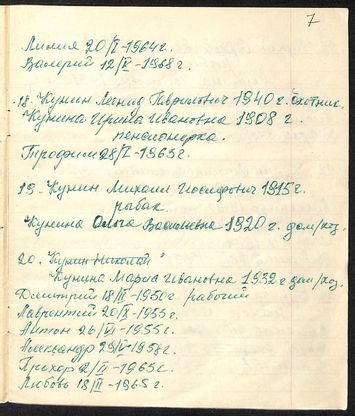 7
Лилия 20/I-1964г.
Валерий 12/IV-1968г.
18. Кунин Леонид Гаврилович 1940г. охотник.
Кунина Ирина Ивановна 1908 г.
пенсионерка.
Трофим 28/I-1963г.
19. Кунин Михаил Иосифович 1915г.
рыбак.
Кунина Ольга Васильевна 1920г. дом/хоз.
20. Кунин Николай
Кунина Мария Ивановна 1932 г дом/хоз.
Дмитрий 18/III-1950г. рабочий
Лаврентий 20/IX-1953г.
Антон 26/III-1955г.
Александр 29/IV-1958г.
Прохор 2/II-1963г.
Любовь 18/II-1965г.